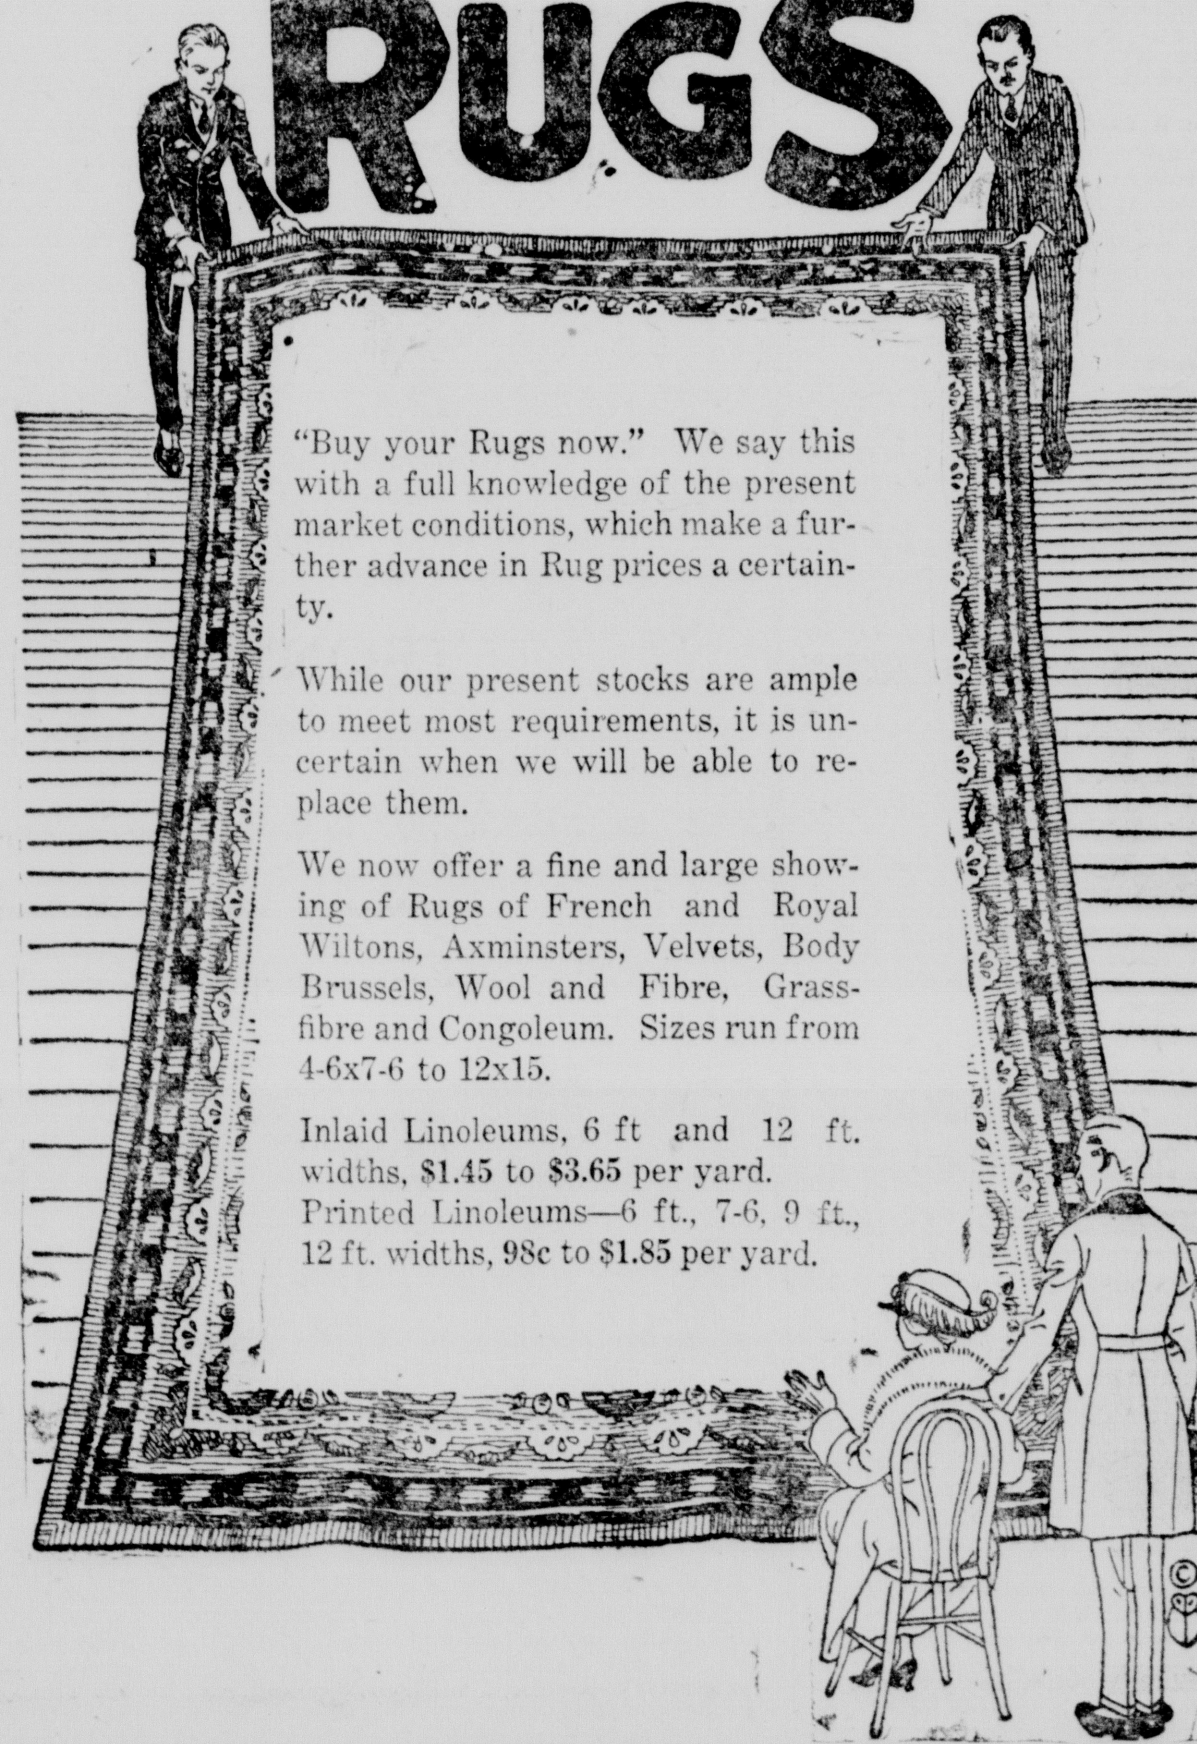 RUGS
“Buy your Rugs now.” We say this
with a full knowledge of the present
market conditions, which make a fur-
ther advance in Rug prices a certain-
ty.
While our present stocks are ample
to meet most requirements, it is un-
certain when we will be able to re-
place them.
We now offer a fine and large show-
ing of Rugs of French and Royal
Wiltons, Axminsters, Velvets, Body
Brussels, Wool and Fibre, Grass-
fibre and Congoleum. Sizes run from
4-6x7-6 to 12x15.
Inlaid Linoleums, 6 ft and 12 ft.
widths, $1.45 to $3.65 per yard.
Printed Linoleums—6 ft., 7-6, 9 ft.,
12 ft. widths, 98c to $1.85 per yard.
©